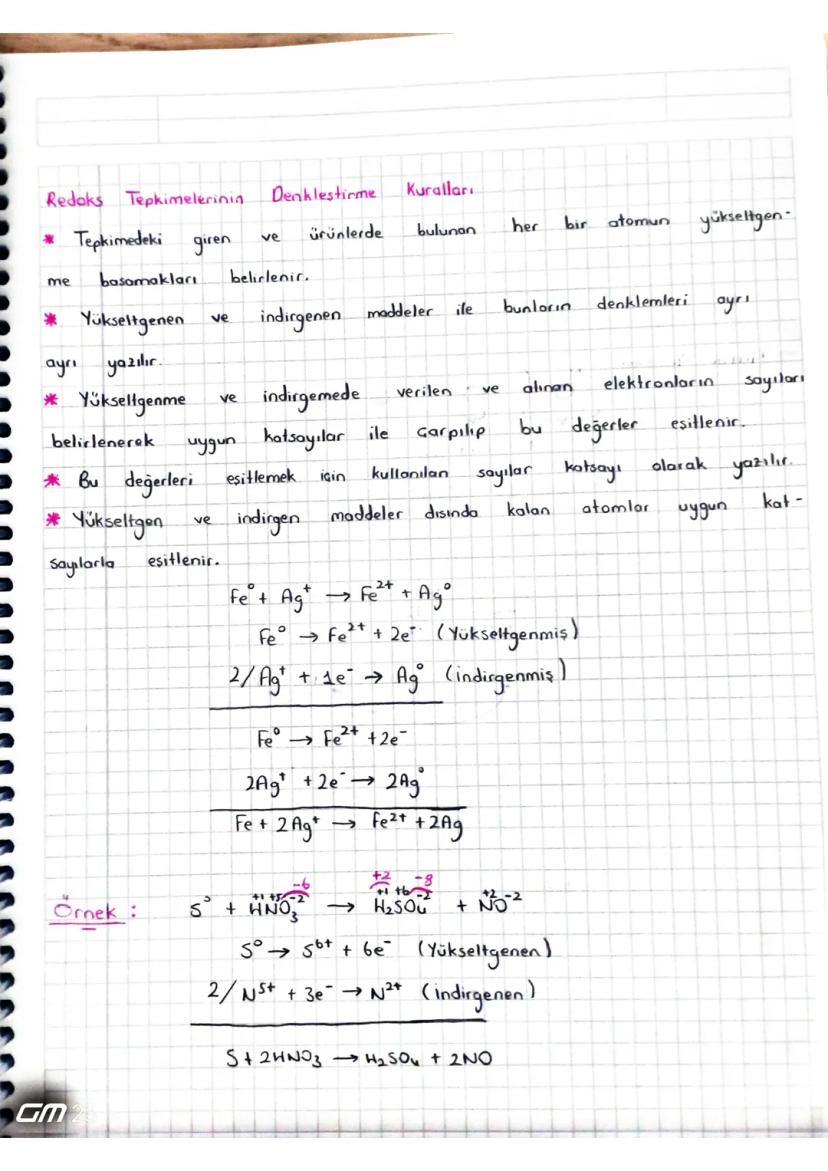 Redoks Tepkimelerinin Denklestirme Kuralları
* Tepkimedeki giren ve ürünlerde bulunan her bir atomun yükseltgen-
me basamakları belirlenir.
* Yükseltgenen ve indirgenen maddeler ile bunların denklemleri ayrı
ayrı yazılır.
* Yükseltgenme ve indirgemede verilen ve alınan elektronların sayıları
belirlenerek uygun katsayılar ile Çarpılıp bu değerler esitlenir.
* Bu değerleri esitlemek için kullanılan sayılar katsayı olarak yazılır.
* Yükseltgen ve indirgen maddeler dısında kalan atomlar uygun kat-
sayılarla esitlenir.
Fe⁰ + Ag⁺ → Fe²⁺ + Ag⁰
Fe⁰ → Fe²⁺ + 2e⁻ (Yükseltgenmiş)
2/ Ag⁺ + 1e⁻ → Ag⁰ (indirgenmiş)
Fe⁰ → Fe²⁺ + 2e⁻
2Ag⁺ + 2e⁻ → 2Ag⁰
Fe + 2Ag⁺ → Fe²⁺ + 2Ag
-6 +2 -8
+1 +5 -2 +1 +6 -2 +2 -2
Örnek : S⁰ + HNO₃ → H₂SO₄ + NO
S⁰ → S⁶⁺ + 6e⁻ (Yükseltgenen)
2/ N⁵⁺ + 3e⁻ → N²⁺ (indirgenen)
S + 2HNO₃ → H₂SO₄ + 2NO
GM 2